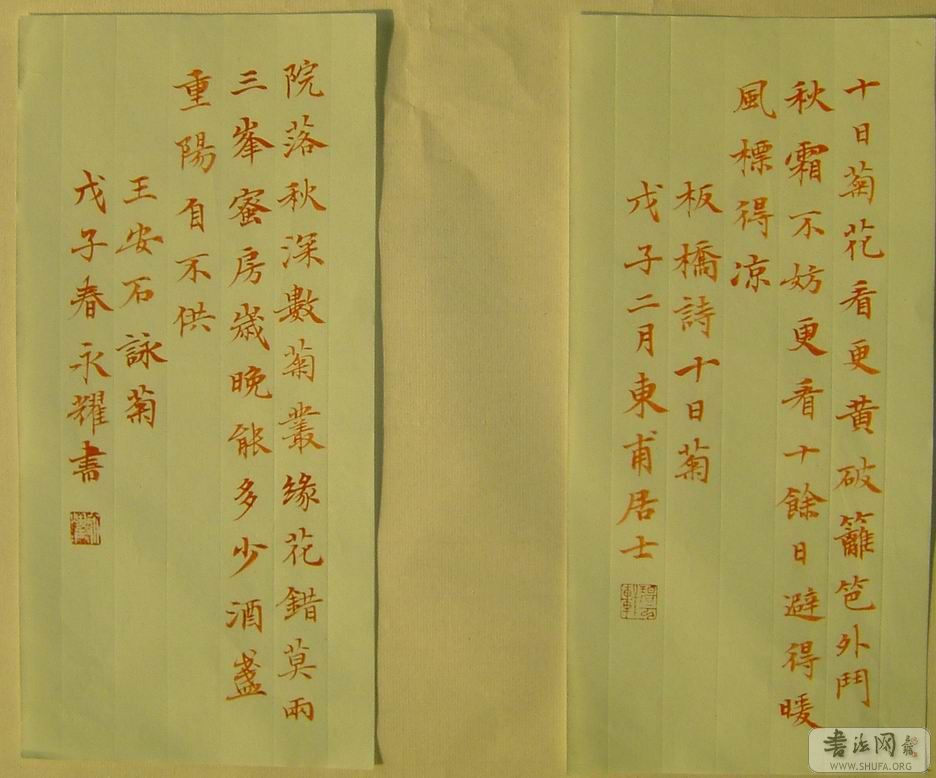 十日菊花看更黄破籬笆外鬥
秋霜不妨更看十餘日避得暖
風標得凉
板橋詩十日菊
戊子二月東甫居士
院落秋深數菊叢缘花錯莫兩
三峯蜜房歲晚能多少酒盞
重陽自不供
王安石詠菊
戊子春永耀書
書法网
WWW.SHUFA.ORG